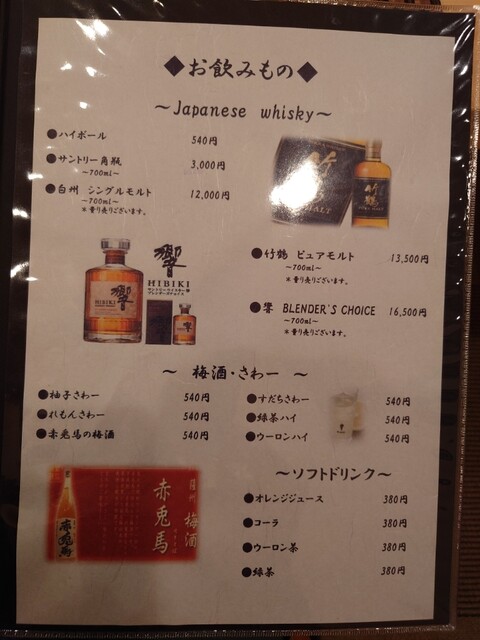 ◆お飲みもの◆
～Japanese whisky～
●ハイボール 540円
●サントリー角瓶 3,000円
～700ml～
●白州 シングルモルト 12,000円
～700ml～
＊量り売りございます。
竹鶴
MALT
竹鶴
●竹鶴 ピュアモルト 13,500円
～700ml～
＊量り売りございます。
響
HIBIKI
サントリーウイスキー響
ブレンダーズチョイス
響
HIBIKI
●響 BLENDER'S CHOICE 16,500円
～700ml～
＊量り売りございます。
～ 梅酒・さわー ～
●柚子さわー 540円
●れもんさわー 540円
●赤兎馬の梅酒 540円
●すだちさわー 540円
●緑茶ハイ 540円
●ウーロンハイ 540円
薩州 赤兎馬 梅酒
赤兎馬
～ソフトドリンク～
●オレンジジュース 380円
●コーラ 380円
●ウーロン茶 380円
●緑茶 380円